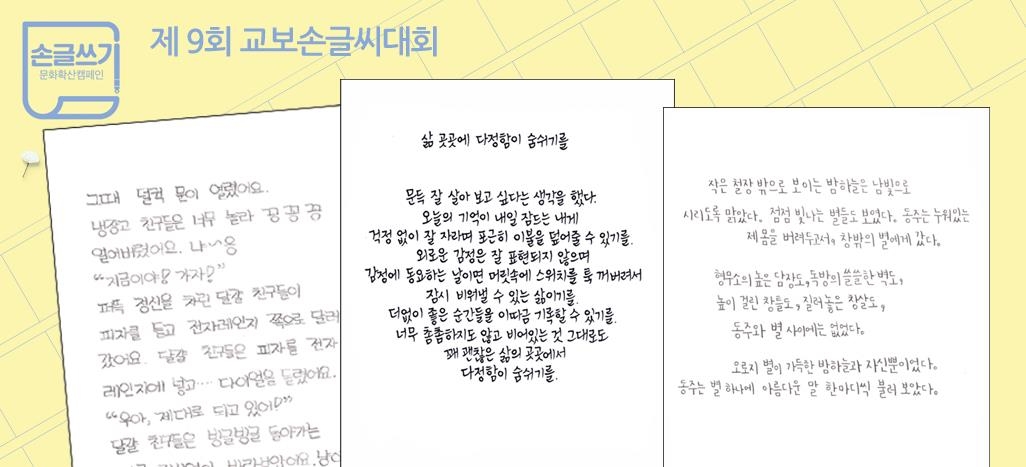 손글쓰기
문화확산캠페인
제 9회 교보손글씨대회
그때 덜컥 문이 열렸어요.
냉장고 친구들은 너무 놀라 꽁 꽁 꽁
얼어버렸어요. 냐~옹
“지금이야! 가자!”
퍼뜩 정신을 차린 달걀 친구들이
피자를 들고 전자레인지 쪽으로 달려
갔어요. 달걀 친구들은 피자를 전자
레인지에 넣고···· 다이얼을 돌렸어요.
“우아, 제대로 되고 있어!”
달걀 친구들은 빙글빙글 돌아가는
바라보았어요.
삶 곳곳에 다정함이 숨쉬기를
문득 잘 살아 보고 싶다는 생각을 했다.
오늘의 기억이 내일 잠드는 내게
걱정 없이 잘 자라며 포근히 이불을 덮어줄 수 있기를.
외로운 감정은 잘 표현되지 않으며
감정에 동요하는 날이면 머릿속에 스위치를 툭 꺼버려서
잠시 비워낼 수 있는 삶이기를.
더없이 좋은 순간들을 이따금 기록할 수 있기를.
너무 촘촘하지도 않고 비어있는 것 그대로도
꽤 괜찮은 삶의 곳곳에서
다정함이 숨쉬기를.
작은 철창 밖으로 보이는 밤하늘은 남빛으로
시리도록 맑았다. 점점 빛나는 별들도 보였다. 동주는 누워있는
제 몸을 버려두고서, 창밖의 별에게 갔다.
형무소의 높은 담장도, 독방의 쓸쓸한 벽도,
높이 걸린 창틀도, 질러놓은 창살도,
동주와 별 사이에는 없었다.
오로지 별이 가득한 밤하늘과 자신뿐이었다.
동주는 별 하나에 아름다운 말 한마디씩 불러 보았다.